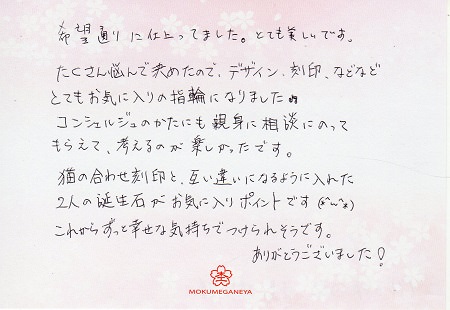 希望通りに仕上ってました。とても美しいです。
たくさん悩んで決めたので、デザイン、刻印、などなど
とてもお気に入りの指輪になりました
コンシェルジュのかたにも親身に相談にのって
もらえて、考えるのが楽しかったです。
猫の合わせ刻印と、互い違いになるように入れた
2人の誕生石がお気に入りポイントです(^ω^)
これからずっと幸せな気持ちでつけられそうです。
ありがとうございました!
MOKUMEGANEYA